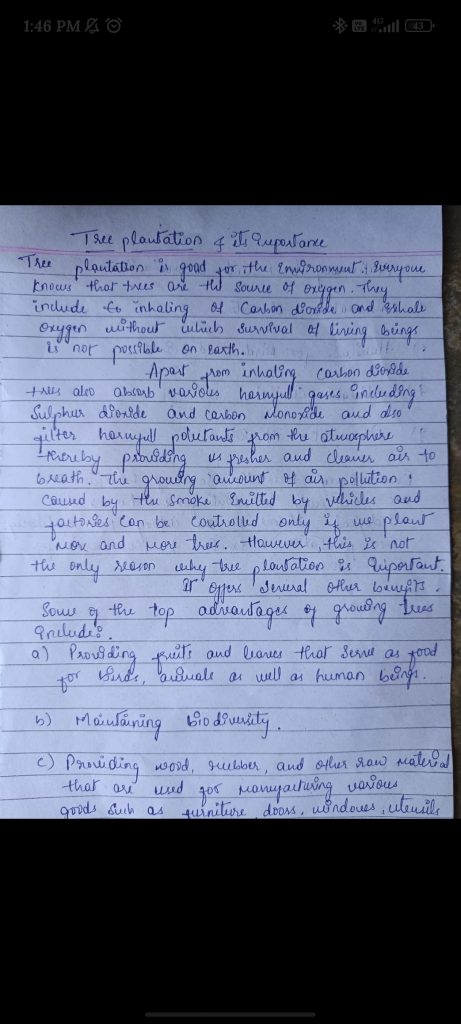 1:46 PM
4G
43
Tree plantation & its Importance
Tree plantation is good for the Environment. Everyone
knows that trees are the Source of Oxygen. They
include to inhaling of Carbon dioxide and Exhale
Oxygen without which survival of living beings
is not possible on earth.
Apart from inhaling carbon dioxide
trees also absorb various harmful gases including
Sulphur dioxide and carbon Monoxide and also
filter harmfull polutants from the atmosphere
thereby providing us fresher and cleaner air to
breath. The growing amount of air pollution
caused by the smoke Emitted by vehicles and
factories can be controlled only if we plant
more and more trees. However, this is not
the only reason why tree plantation is Important.
It offers several other benefits.
Some of the top advantages of growing trees
Include:
a) Providing fruits and leaves that serve as food
for birds, animals as well as human beings.
b) Maintaining biodiversity.
c) Providing wood, rubber, and other raw material
that are used for Manufacturing various
goods such as furniture, doors, windows, utensils